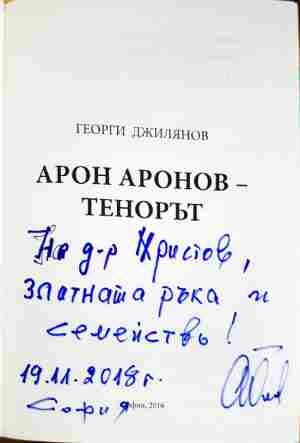 ГЕОРГИ ДЖИЛЯНОВ
АРОН АРОНОВ –
ТЕНОРЪТ
На д-р Христов,
Златната ръка и
семейство!
19.11.2018 г.
София
София, 2016